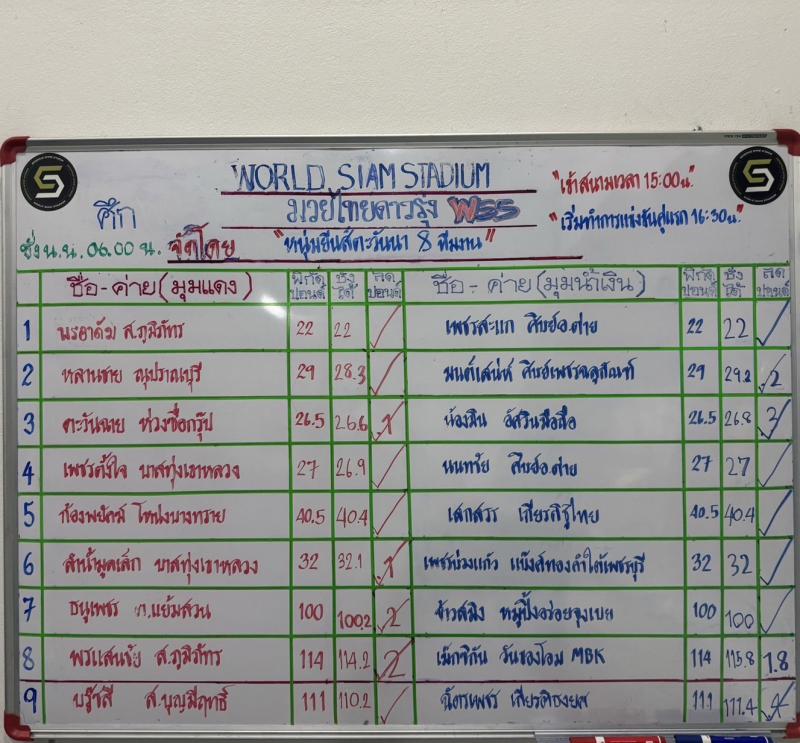 WORLD SIAM STADIUM
ศึก มวยไทยดาวรุ่ง WSS
"เข้าสนามเวลา 15:00 น."
"เริ่มทำการแข่งขันคู่แรก 16:30 น."
ชั่ง น.น. 06.00 น. จัดโดย "หนุ่มยีนส์ตะวันนา 8 ทีมงาน"
ชื่อ - ค่าย (มุมแดง) พิกัดปอนด์ ชั่งได้ ลดปอนด์ ชื่อ - ค่าย (มุมน้ำเงิน) พิกัดปอนด์ ชั่งได้ ลดปอนด์
1 พรอาดัม ส.ภูมิภัทร 22 22 ✓ เพชรสะแก ศิษย์อ.ต่าย 22 22 ✓
2 หลานชาย ณุปราณบุรี 29 28.3 ✓ มนต์เสน่ห์ 29 29.2 .2
3 ตะวันฉาย ห่วงซื่อกรุ๊ป 26.5 26.6 .1 น้องมีน อัศวินมือถือ 26.5 26.8 .3
4 เพชรตั้งใจ บาสทุ่งเขาหลวง 27 26.9 ✓ นนทชัย ศิษย์อ.ต่าย 27 27 ✓
5 ก้องพยัคฆ์ โหน่งบางทราย 40.5 40.4 ✓ เสกสรร 40.5 40.4 ✓
6 ลำน้ำมูลเล็ก บาสทุ่งเขาหลวง 32 32.1 .1 เพชรบ่วงแก้ว แบ๊งส์ทองคำใต้เพชรบุรี 32 32 ✓
7 ธนูเพชร ท.แย้มสวน 100 100.2 .2 จ้าวสมิง หมูปิ้งอร่อยจุงเบย 100 100 ✓
8 พรแสนชัย ส.ภูมิภัทร 114 114.2 .2 เม็กซิกัน วันชองโอม MBK 114 115.8 1.8
9 บรู๊ซลี ส.บุญมีฤทธิ์ 111 110.2 ✓ ฉัตรเพชร เกียรติธงยศ 111 111.4 .4